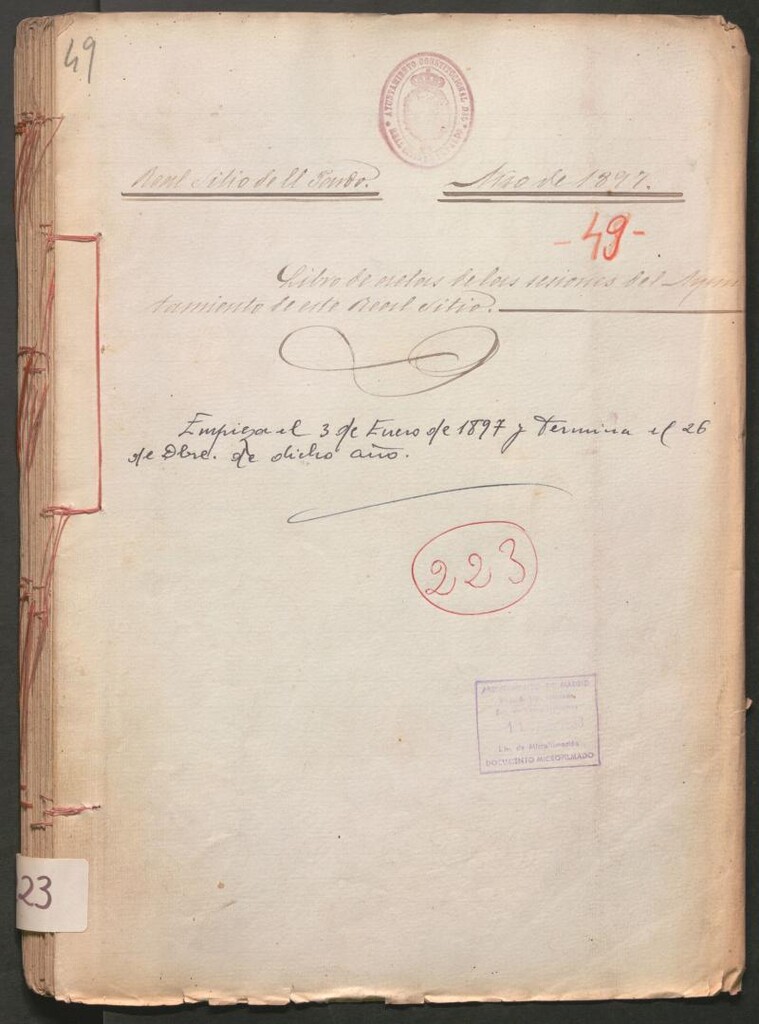 49
AYUNTAMIENTO CONSTITUCIONAL DEL
Real Sitio de El Pardo.
Año de 1897.
-49-
Libro de actas de las sesiones del Ayun
tamiento de este Real Sitio.
Empieza el 3 de Enero de 1897 y termina el 26
de Dbre. de dicho año.
223
AYUNTAMIENTO DE MADRID
DOCUMENTO MICROFILMADO
23